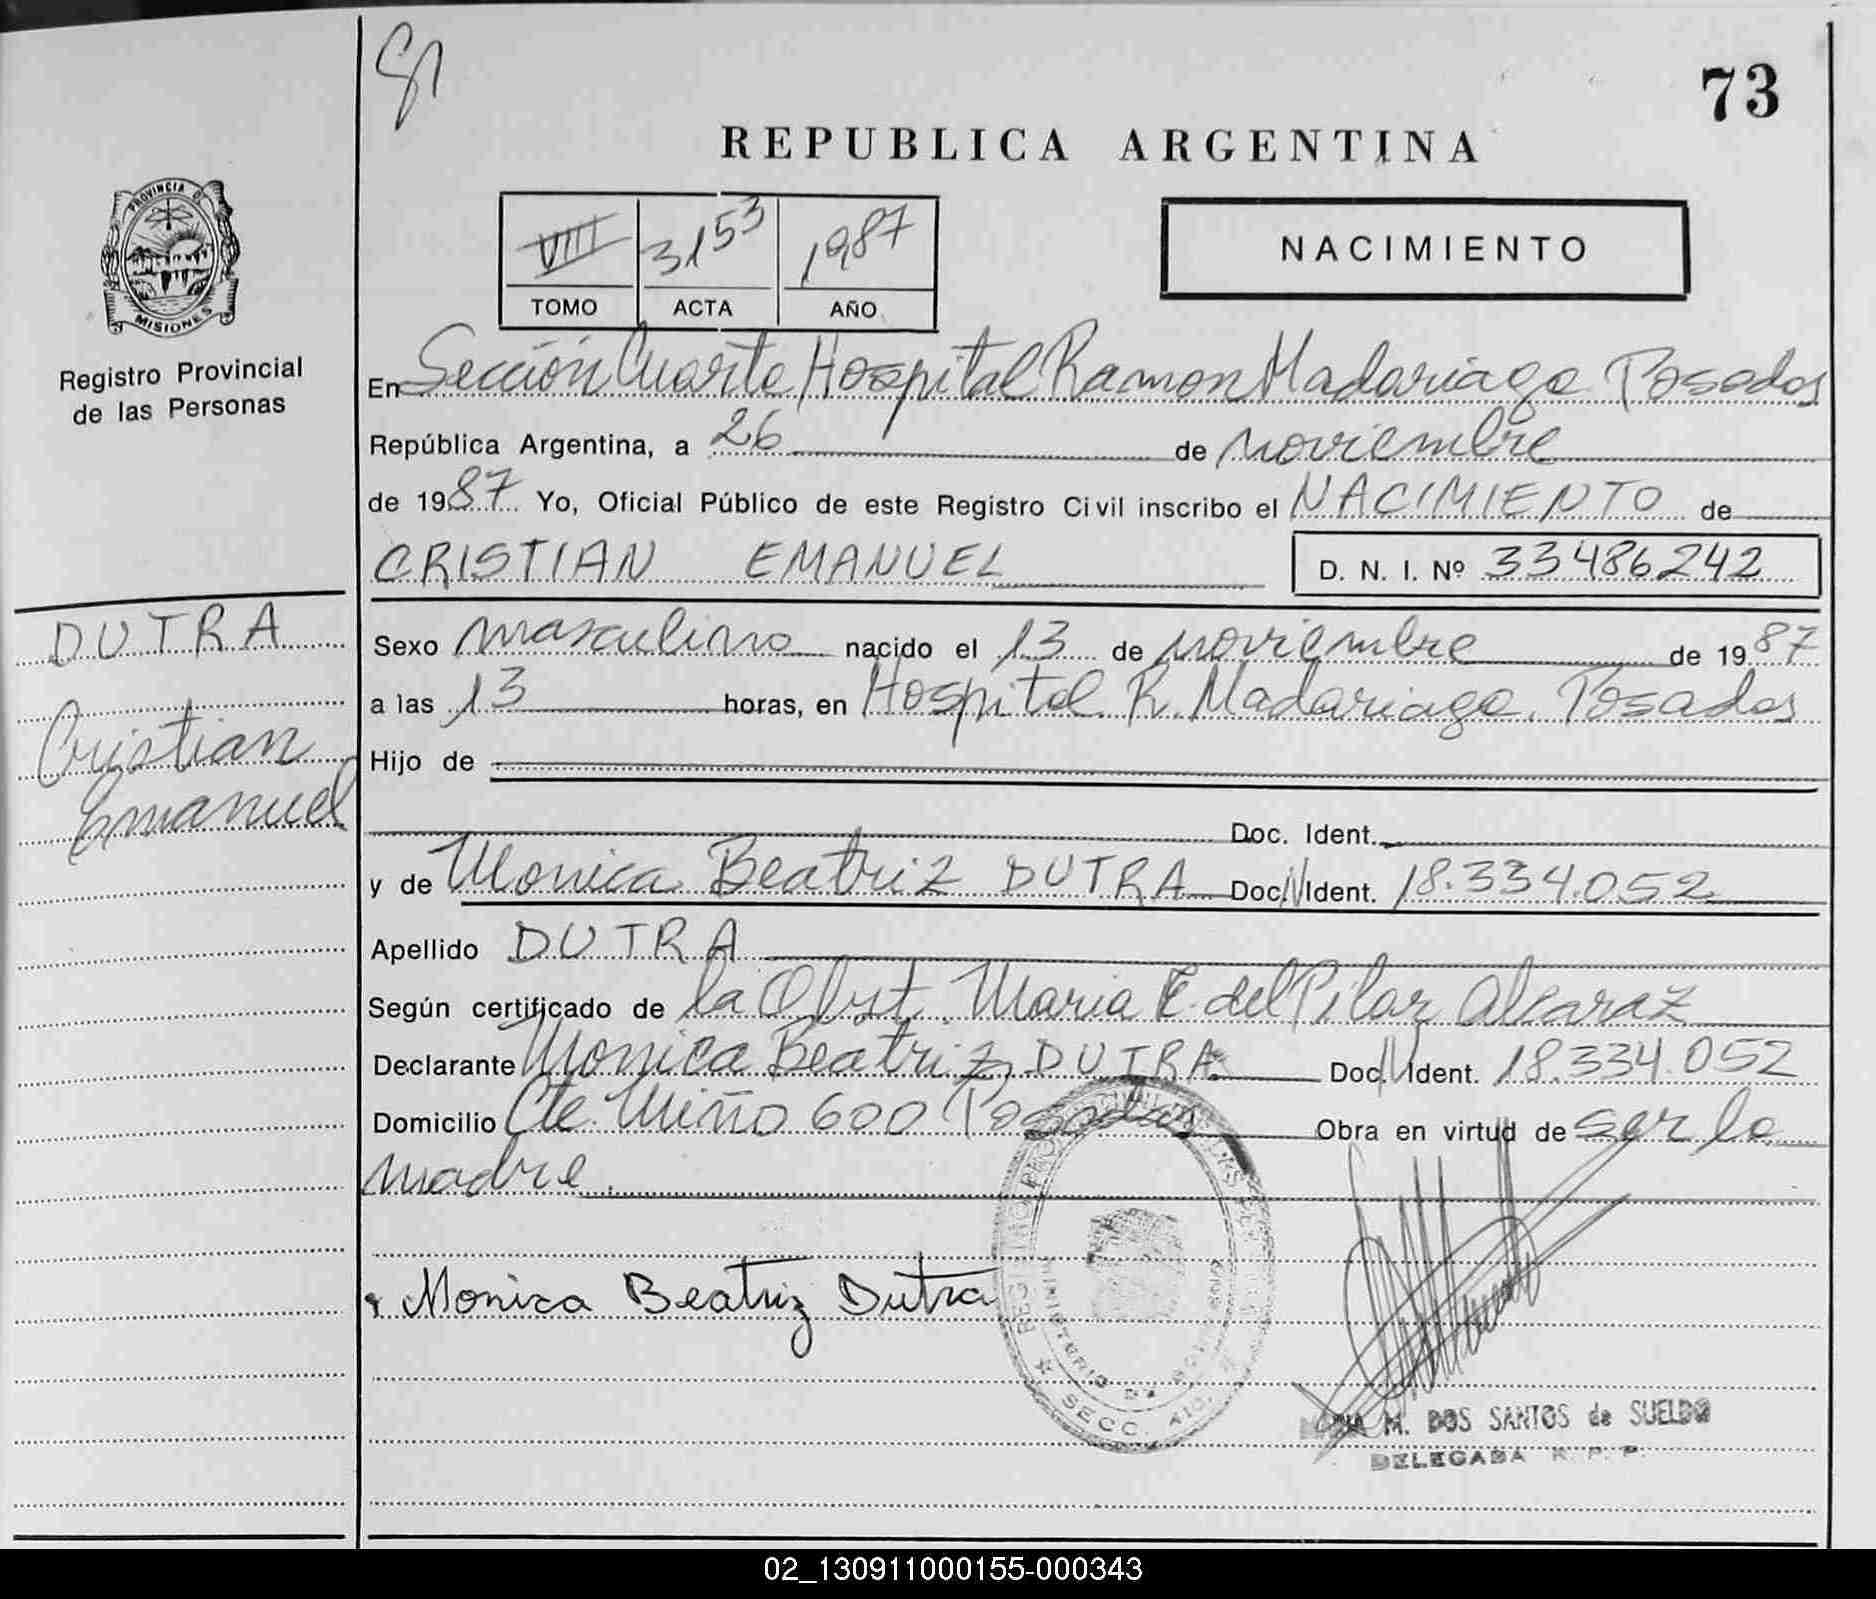 73
REPUBLICA ARGENTINA
PROVINCIA D
MISIONES
Registro Provincial
de las Personas
VIII 3153 1987
TOMO ACTA AÑO
NACIMIENTO
En Sección Cuarta Hospital Ramon Madariaga Posadas
República Argentina, a 26 de noviembre
de 1987 Yo, Oficial Público de este Registro Civil inscribo el NACIMIENTO de
CRISTIAN EMANUEL D. N. I. Nº 33486242
DUTRA
Cristian
Emanuel
Sexo masculino nacido el 13 de noviembre de 1987
a las 13 horas, en Hospital R. Madariaga. Posadas
Hijo de
Doc. Ident.
y de Monica Beatriz DUTRA Doc. N Ident. 18.334.052
Apellido DUTRA
Según certificado de la Obst. Maria E. del Pilar Alcaraz
Declarante Monica Beatriz DUTRA Doc. N Ident. 18.334.052
Domicilio Cte. Miño 600 Posadas Obra en virtud de ser la
madre.
Monica Beatriz Dutra
MINISTERIO DE
SECC. 4
M. DOS SANTOS de SUELDO
DELEGADA R. P. P.
02_130911000155-000343